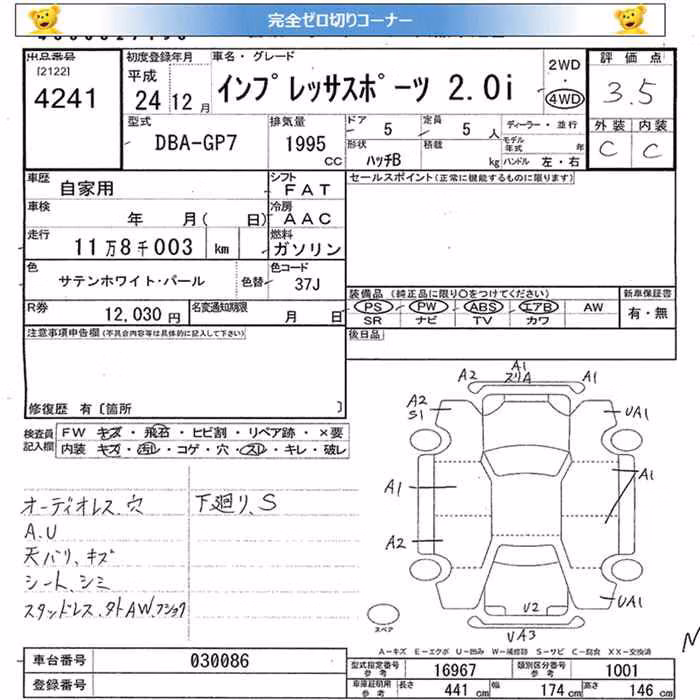 完全ゼロ切りコーナー
出品番号 初度登録年月 車名・グレード 2WD 評価点
[2122] 平成 インプレッサスポーツ 2.0i ・ 3.5
4241 24年12月 4WD
外装 内装
型式 排気量 ドア 5 定員 5人 ディーラー・並行 C C
DBA-GP7 1995CC 形状 ハッチB 積載 kg モデル年式 年
ハンドル 左・右
車歴 自家用 シフト FAT セールスポイント(正常に機能するものに限ります)
車検 年 月( 日) 冷房 AAC
走行 11万8千003 km 燃料 ガソリン
色 サテンホワイト・パール 色替 色コード 37J
装備品 (純正品に限り○をつけてください) 新車保証書
R券 12,030円 名変通知期限 月 日 PS PW ABS エアB AW 有・無
SR ナビ TV カワ
注意事項申告欄(不具合内容等は具体的に記入して下さい) 後日品
修復歴 有〔箇所 〕
A1
A2 スリA A1
A2
S1 UA1
A1 A1
A2
V2 UA1
UA3
スペア
検査員記入欄 FW キズ・飛石・ヒビ割・リペア跡・×要
内装 キズ・汚レ・コゲ・穴・スレ・キレ・破レ
オーディオレス、穴 下廻り、S
A.U
天バリ、キズ
シート、シミ
スタッドレス、タトAW、フショク
A−キズ E−エクボ U−凹み W−補修跡 S−サビ C−腐食 XX−交換済
N
車台番号 030086 型式指定番号 参考 16967 類別区分番号 参考 1001
登録番号 車庫証明用 参考 長さ 441cm 幅 174cm 高さ 146cm